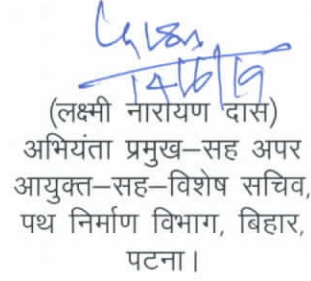 14/6/19
(लक्ष्मी नारायण दास)
अभियंता प्रमुख–सह अपर
आयुक्त–सह–विशेष सचिव,
पथ निर्माण विभाग, बिहार,
पटना।